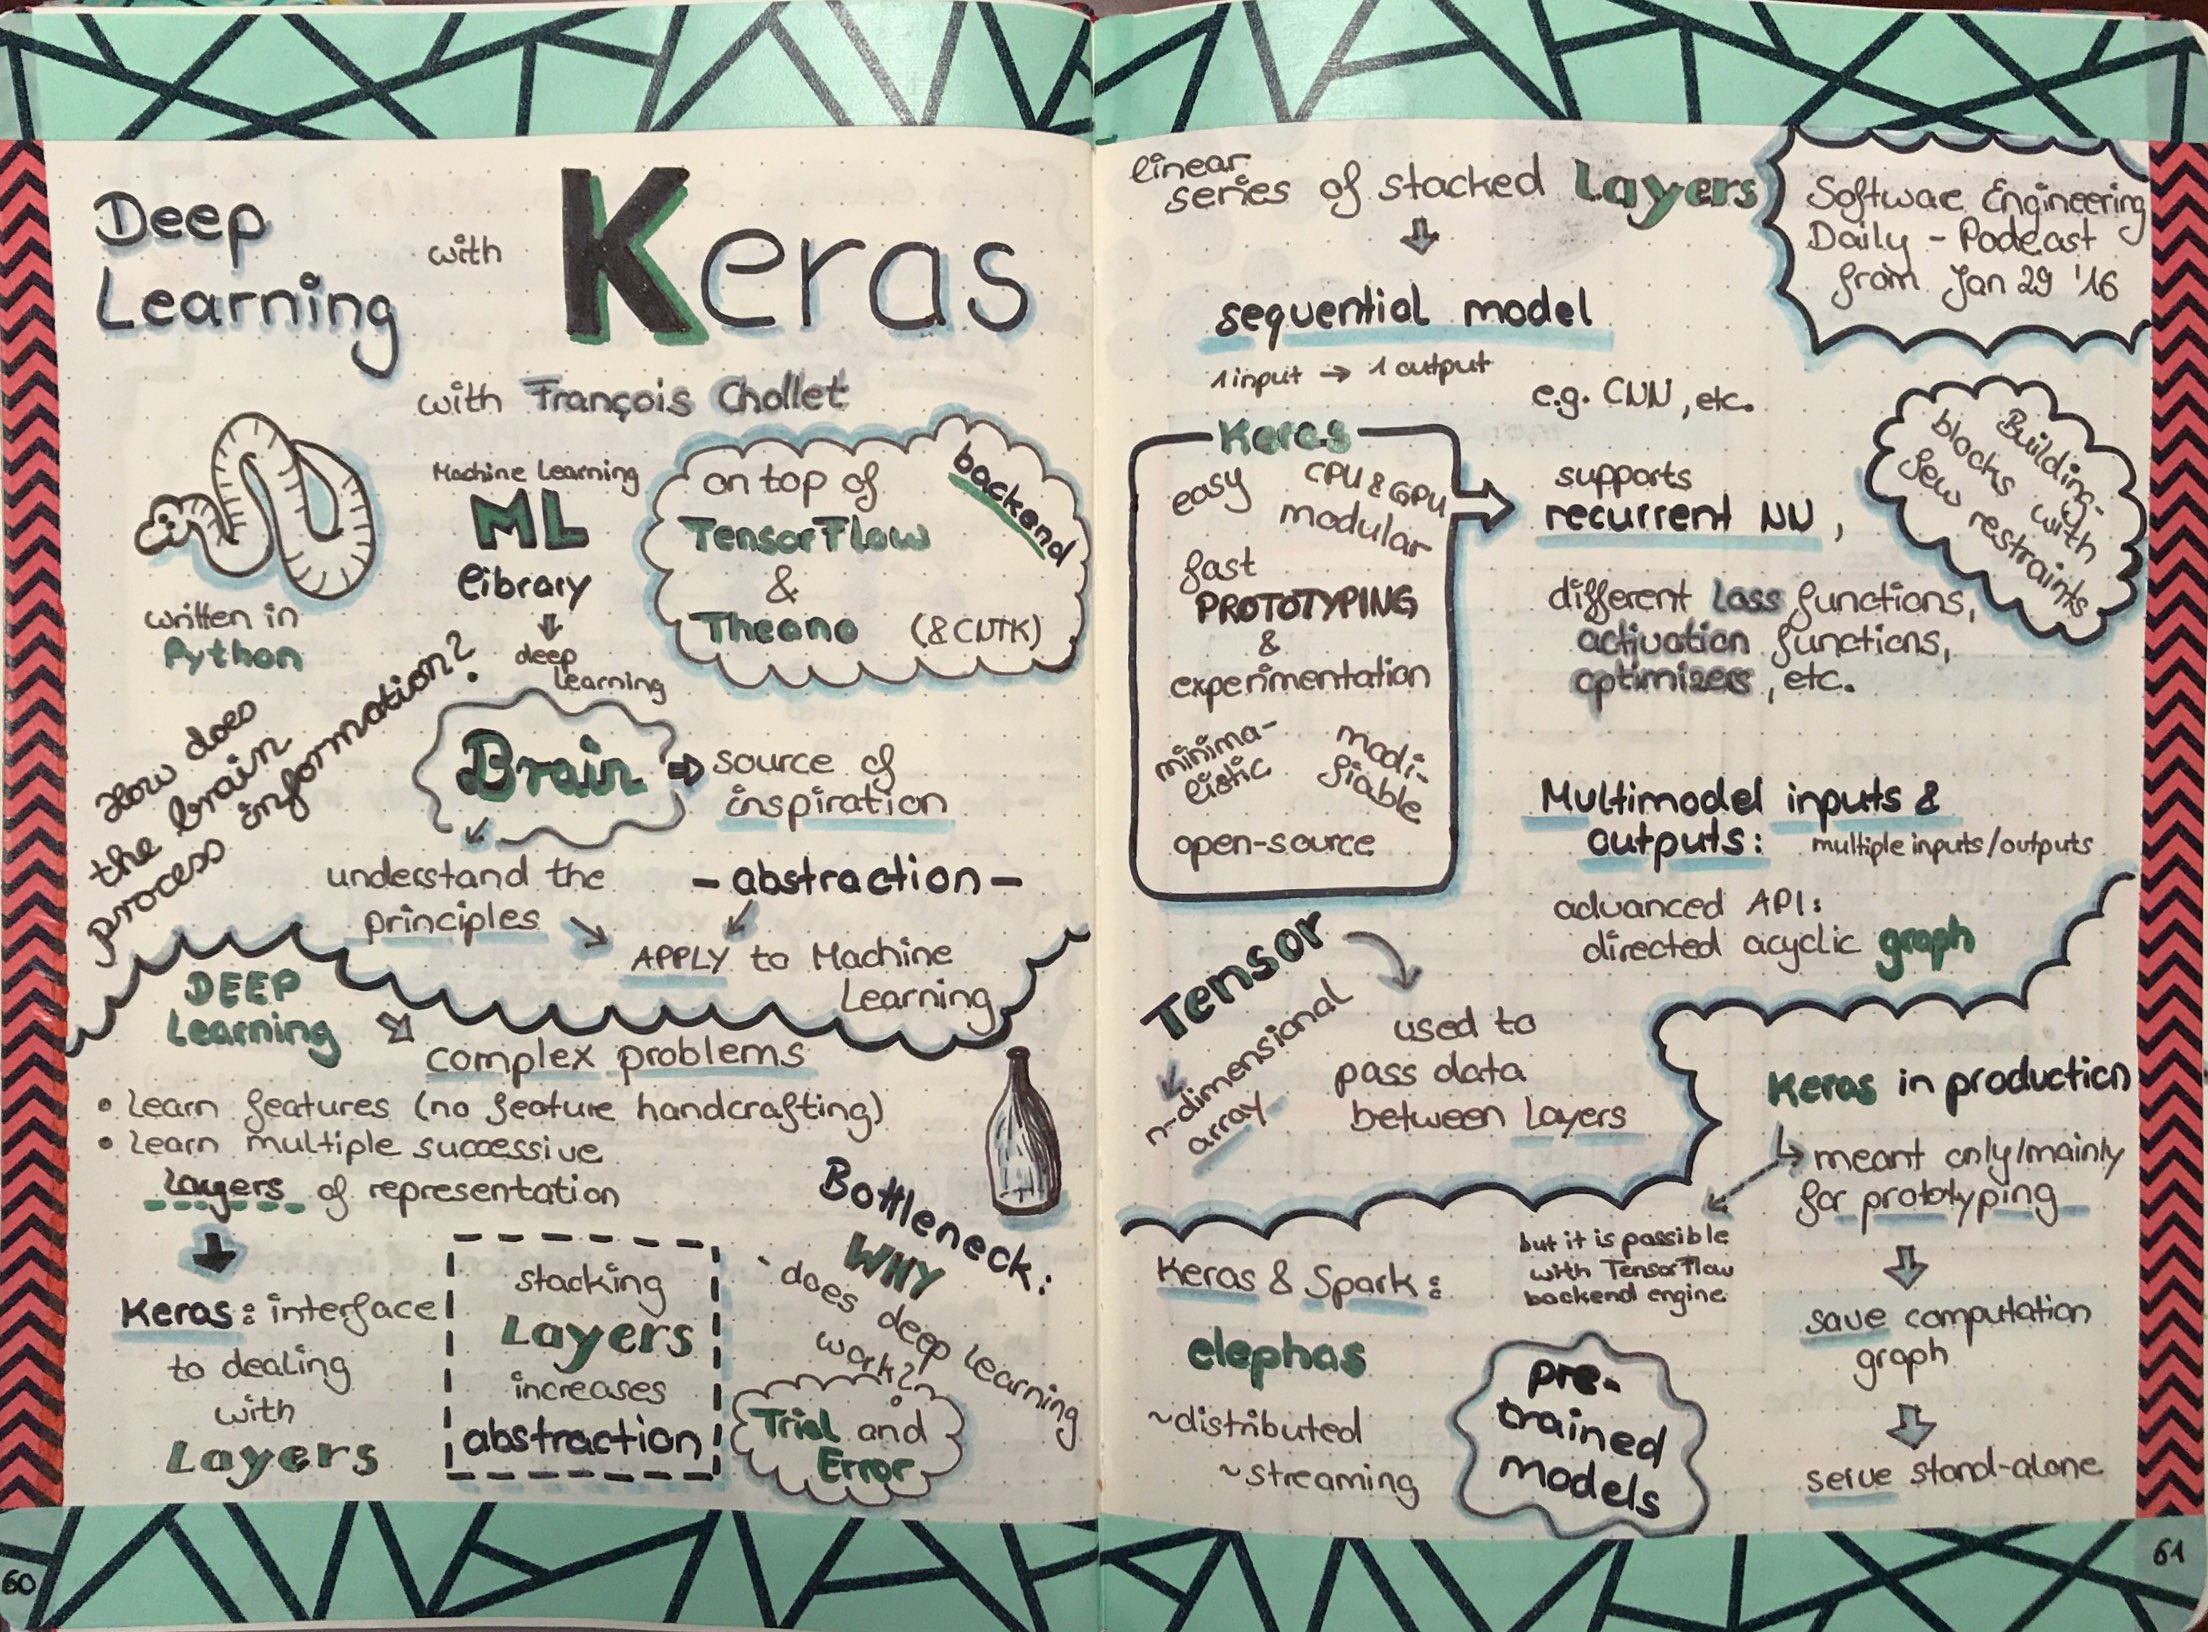 Deep
Learning
with
Keras
with François Chollet
written in
Python
Machine Learning
ML
library
deep
learning
on top of
TensorFlow
&
Theano (& CNTK)
backend
How does
the brain
process information?
Brain
source of
inspiration
understand the
principles
- abstraction -
APPLY to Machine
Learning
DEEP
Learning
complex problems
• learn features (no feature handcrafting)
• learn multiple successive
layers of representation
Keras: interface
to dealing
with
Layers
stacking
Layers
increases
abstraction
Bottleneck:
WHY
does deep learning
work?
Trial and
Error
60
linear
series of stacked Layers
sequential model
1 input → 1 output
e.g. CNN, etc.
Softwae Engineering
Daily - Podcast
from Jan 29 '16
Building-
blocks with
few restraints
Keras
easy
CPU & GPU
modular
fast
PROTOTYPING
&
experimentation
minima-
listic
modi-
fiable
open-source
supports
recurrent NN,
different loss functions,
activation functions,
optimizers, etc.
Multimodel inputs &
outputs: multiple inputs/outputs
advanced API:
directed acyclic graph
Tensor
n-dimensional
array
used to
pass data
between layers
Keras in production
meant only/mainly
for prototyping
but it is possible
with TensorFlow
backend engine
save computation
graph
serve stand-alone
Keras & Spark:
elephas
~distributed
~streaming
pre-
trained
models
61